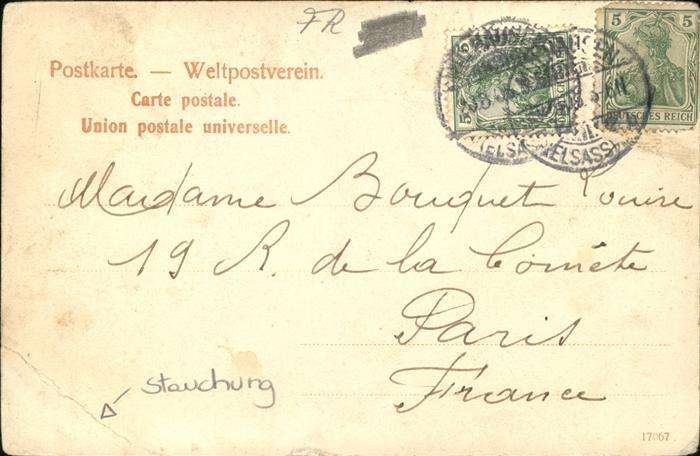 FR
Postkarte. — Weltpostverein.
Carte postale.
Union postale universelle.
5 5
DEUTSCHES REICH
(ELSASS)
Madame Bouquet Louise
19 R. de la Comète
Paris
France
Stauchung
17067